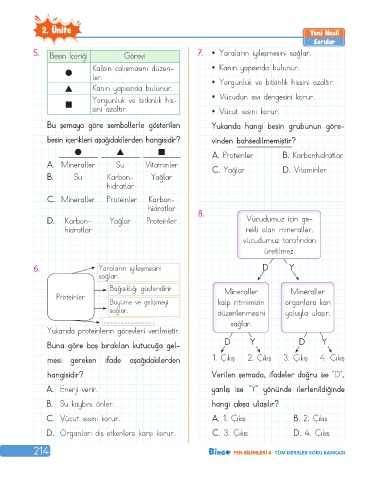 2. Ünite
Yeni Nesil
Sorular
5.
Besin İçeriği
Görevi
●
Kalbin çalışmasını düzen-
ler.
▲
Kanın yapısında bulunur.
■
Yorgunluk ve bitkinlik his-
sini azaltır.
Bu şemaya göre sembollerle gösterilen
besin içerikleri aşağıdakilerden hangisidir?
● ▲ ■
A. Mineraller Su Vitaminler
B. Su Karbon- Yağlar
hidratlar
C. Mineraller Proteinler Karbon-
hidratlar
D. Karbon- Yağlar Proteinler
hidratlar
6.
Proteinler
Yaraların iyileşmesini
sağlar.
Bağışıklığı güçlendirir.
Büyüme ve gelişmeyi
sağlar.
Yukarıda proteinlerin görevleri verilmiştir.
Buna göre boş bırakılan kutucuğa gel-
mesi gereken ifade aşağıdakilerden
hangisidir?
A. Enerji verir.
B. Su kaybını önler.
C. Vücut ısısını korur.
D. Organları dış etkenlere karşı korur.
7. • Yaraların iyileşmesini sağlar.
• Kanın yapısında bulunur.
• Yorgunluk ve bitkinlik hissini azaltır.
• Vücudun sıvı dengesini korur.
• Vücut ısısını korur.
Yukarıda hangi besin grubunun göre-
vinden bahsedilmemiştir?
A. Proteinler B. Karbonhidratlar
C. Yağlar D. Vitaminler
8.
Vücudumuz için ge-
rekli olan mineraller,
vücudumuz tarafından
üretilmez.
D Y
Mineraller
kalp ritmimizin
düzenlenmesini
sağlar.
Mineraller
organlara kan
yoluyla ulaşır.
D Y D Y
1. Çıkış 2. Çıkış 3. Çıkış 4. Çıkış
Verilen şemada, ifadeler doğru ise "D",
yanlış ise "Y" yönünde ilerlenildiğinde
hangi çıkışa ulaşılır?
A. 1. Çıkış B. 2. Çıkış
C. 3. Çıkış D. 4. Çıkış
214
BinGO FEN BİLİMLERİ 4 - TÜM DERSLER SORU BANKASI